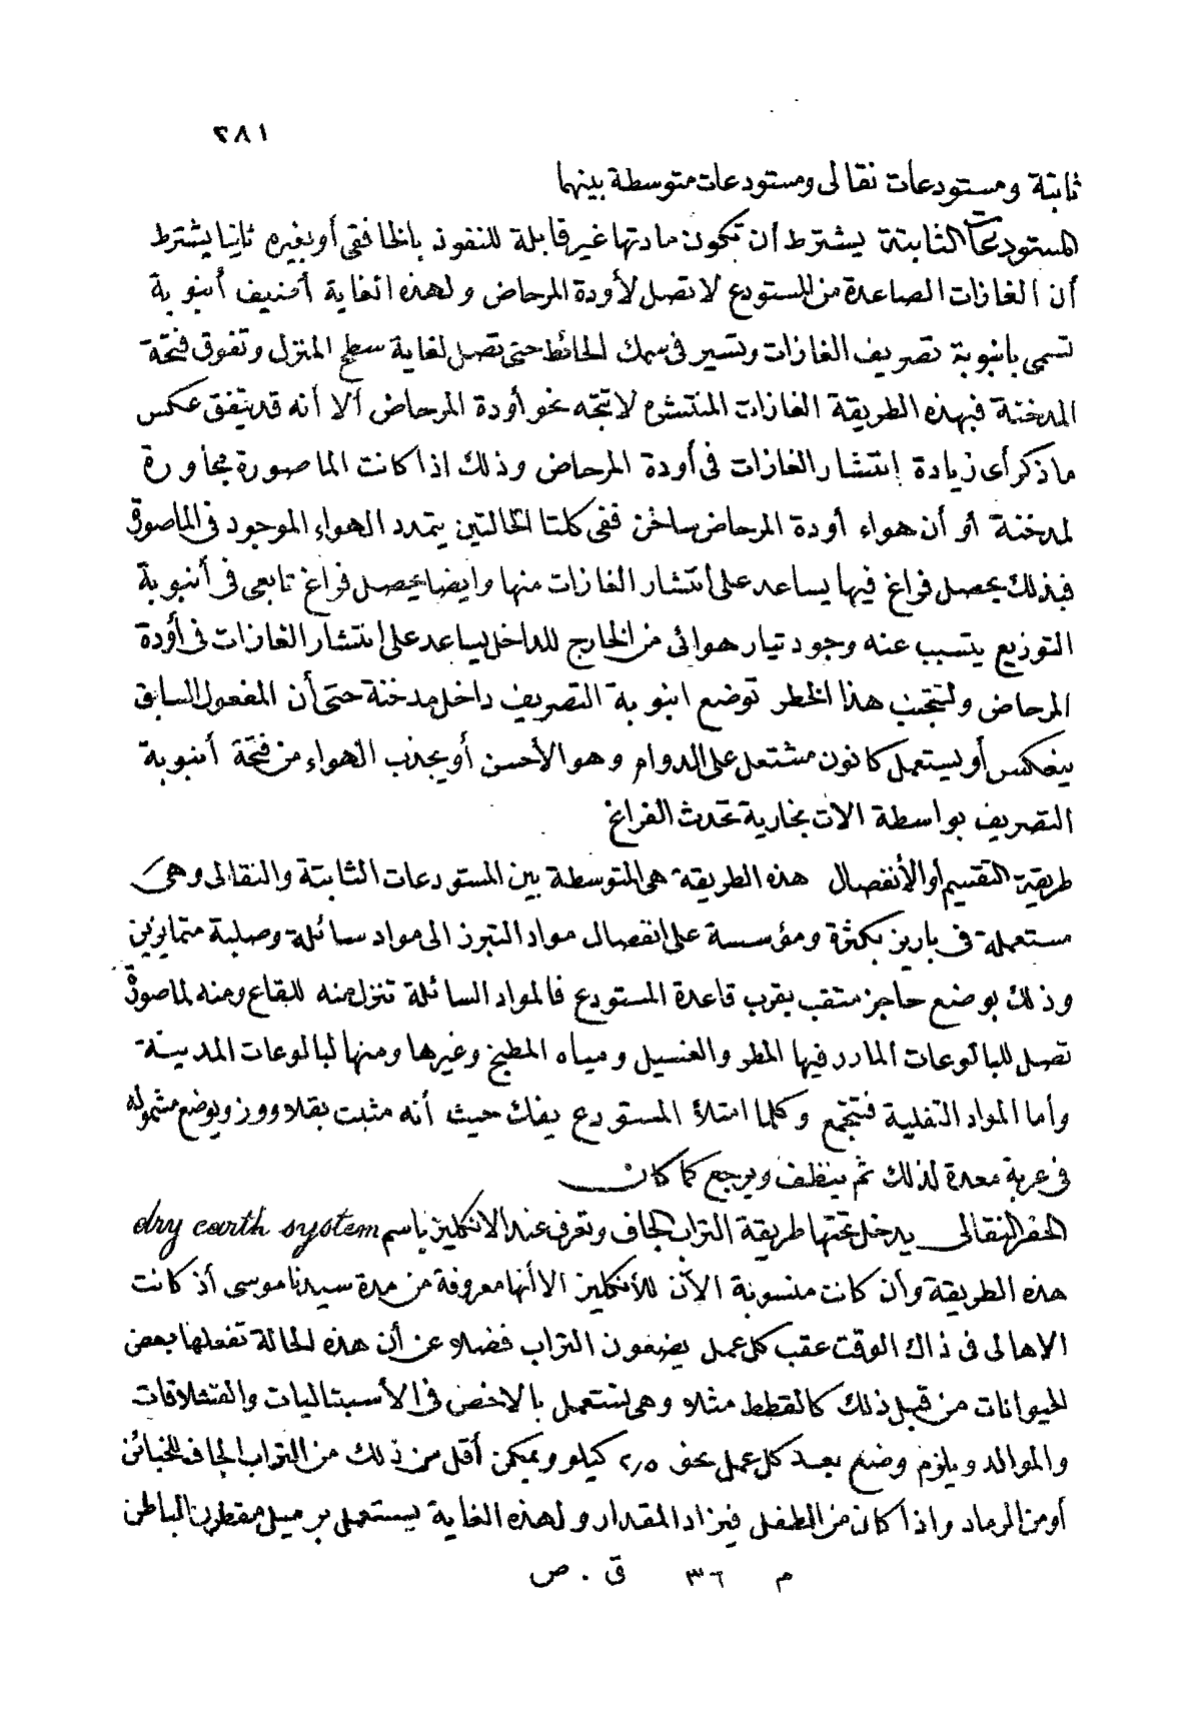 ٢٨١
ثابتة ومستودعات نقالى ومستودعات متوسطة بينهما
المستودعات الثابتة يشترط أن تكون مادتها غير قابلة للنفوذ بالخافقى أو بغيره ثانيا يشترط
أن الغازات الصاعدة من المستودع لا تصل لأودة المرحاض ولهذه الغاية أضيف أنبوبة
تسمى بانبوبة تصريف الغازات وتسير فى سمك الحائط حتى تصل لغاية سطح المنزل وتفوق فتحة
المدخنة فبهذه الطريقة الغازات المنتشره لا تتجه نحو أودة المرحاض ألا أنه قد يتفق عكس
ما ذكر أى زيادة إنتشار الغازات فى أودة المرحاض وذلك اذا كانت الماصورة مجاورة
لمدخنة أو أن هواء أودة المرحاض ساخن ففى كلتا الحالتين يتمدد الهواء الموجود فى الماصورة
فبذلك يحصل فراغ فيها يساعد على انتشار الغازات منها وايضا يحصل فراغ تابعى فى أنبوبة
التوزيع يتسبب عنه وجود تيار هوائى من الخارج للداخل ليساعد على انتشار الغازات فى أودة
المرحاض ولتجنب هذا الخطر توضع انبوبة التصريف داخل مدخنة حتى أن المفعول السابق
ينعكس أو يستعمل كانون مشتعل على الدوام وهو الأحسن أو يجذب الهواء من فتحة أنبوبة
التصريف بواسطة الات بخارية تحدث الفراغ
طريقة التقسيم أو الأنفصال هذه الطريقة هى المتوسطة بين المستودعات الثابتة والنقالى وهى
مستعملة فى باريز بكثرة ومؤسسة على انفصال مواد التبرز الى مواد سائلة وصلبة متمايزين
وذلك بوضع حاجز مثقب بقرب قاعدة المستودع فالمواد السائلة تنزل منه للبقاع ومنه لماصورة
تصل للبالوعات المارد فيها المطر والغسيل ومياه المطبخ وغيرها ومنها لبالوعات المدينة
وأما المواد التفلية فتتجمع وكلما امتلأ المستودع يفك حيث أنه مثبت بقلاووز ويوضع مشموله
فى عربة معدة لذلك ثم ينظف ويرجع كما كان
الحفر النقالى يدخل تحتها طريقة التراب الجاف وتعرف عند الانكليز باسم dry earth system
هذه الطريقة وأن كانت منسوبة الأن للأنكليز الا أنها معروفة من مدة سيدنا موسى أذ كانت
الاهالى فى ذاك الوقت عقب كل عمل يضعون التراب فضلا عن أن هذه الحالة تفعلها بعض
الحيوانات من قبل ذلك كالقطط مثلا وهى تستعمل بالاخص فى الأسبتاليات والقشلاقات
والموالد ويلزم وضع بعد كل عمل نحو ٢٫٥ كيلو ويمكن أقل من ذلك من التراب الجاف للخبائن
أو من الرماد واذا كان من الطفل فيزاد المقدار ولهذه الغاية يستعمل برميل مقطرن الباطن
م ٣٦ ق . ص